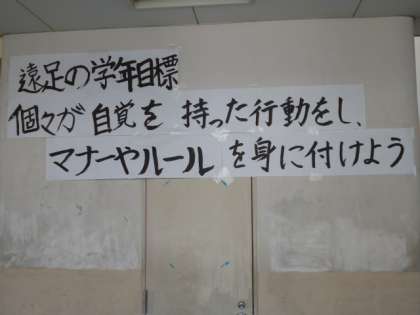 遠足の学年目標
個々が自覚を持った行動をし、
マナーやルールを身に付けよう